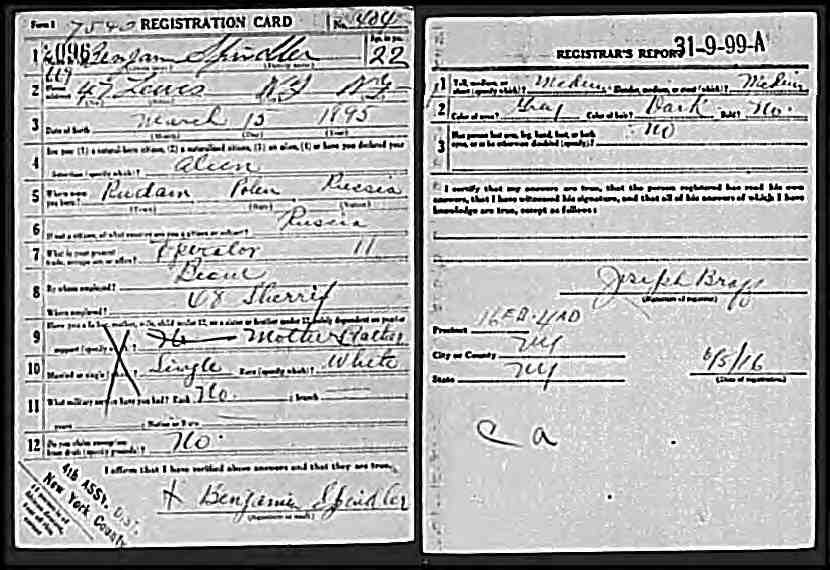 Form 1 7540 REGISTRATION CARD No. 404
1 Benjam Spindler Age, in yrs. 22
119
2 47 Lewis N.Y. N.Y.
3 Date of birth March 15 1895
(Month) (Day) (Year)
4 Are you (1) a natural-born citizen, (2) a naturalized citizen, (3) an alien, (4) or have you declared your
intention (specify which)? alien
5 Where were you born? Radam Polen Russia
(Town) (State) (Nation)
6 If not a citizen, of what country are you a citizen or subject? Russia
7 What is your present trade, occupation, or office? Operator 11
8 By whom employed?
Where employed? 68 Sherrif
9 Have you a father, mother, wife, child under 12, or a sister or brother under 12, solely dependent on you for
support (specify which)? Mother Father
10 Married or single (which)? Single Race (specify which)? White
11 What military service have you had? Rank No ; branch
years ; Nation or State
12 Do you claim exemption from draft (specify grounds)? No.
I affirm that I have verified above answers and that they are true.
X Benjamin Spindler
(Signature or mark)
4th ASSY. DIST.
New York County
REGISTRAR'S REPORT 31-9-99-A
1 Tall, medium, or short (specify which)? Medium Slender, medium, or stout (which)? Medium
2 Color of eyes? Gray Color of hair? Dark Bald? No.
3 Has person lost arm, leg, hand, foot, or both eyes, or is he otherwise disabled (specify)? No
I certify that my answers are true, that the person registered has read his own
answers, that I have witnessed his signature, and that all of his answers of which I have
knowledge are true, except as follows:
Joseph Bragg
(Signature of registrar)
Precinct 16 ED. 4 AD
City or County NY
State NY
6/5/16
(Date of registration)
C a